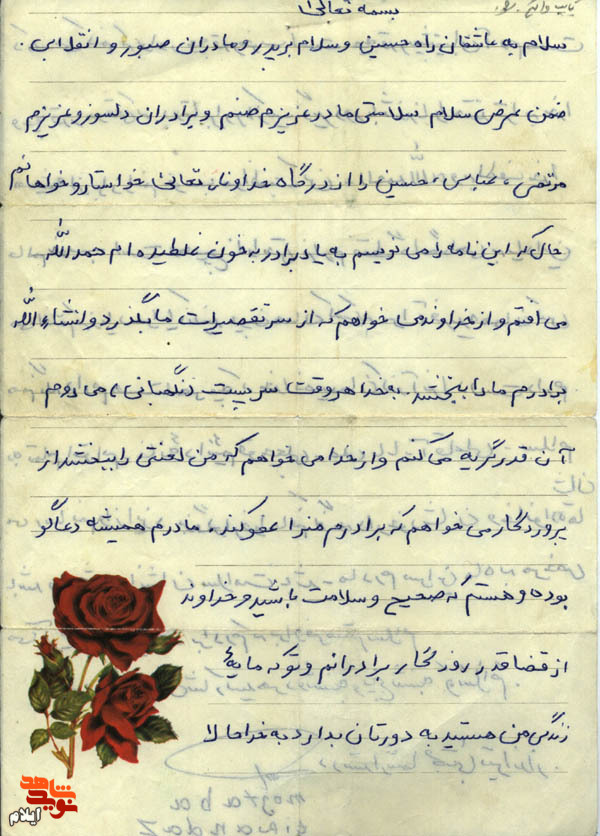 بسمه تعالی
سلام به عاشقان راه حسین و سلام بر پدر و مادران صبور و انقلابی.
ضمن عرض سلام سلامتی مادر عزیزم صنم و برادران دلسوز و عزیزم
مرتضی، عباس، حسین را از درگاه خداوند تعالی خواستار و خواهانم
حال که این نامه را می نویسم به یاد برادر به خون غلطیده ام حمدالله
می افتم و از خداوند می خواهم که از سر تقصیرات ما بگذرد و انشاءالله
برادرم ما را ببخشد. به خدا هر وقت سر پست (نگهبانی) می روم
آن قدر گریه می کنم و از خدا می خواهم که من لعنتی را ببخشد از
پروردگار می خواهم که برادرم من را عفو کند. مادرم همیشه دعاگو
بوده و هستم که صحیح و سلامت باشید و خداوند
از قضا قدر روزگار برادرانم و تو که مایهٔ
زندگی من هستید به دورتان بدارد به خدا حالا
شاهد
نوید
ایلام